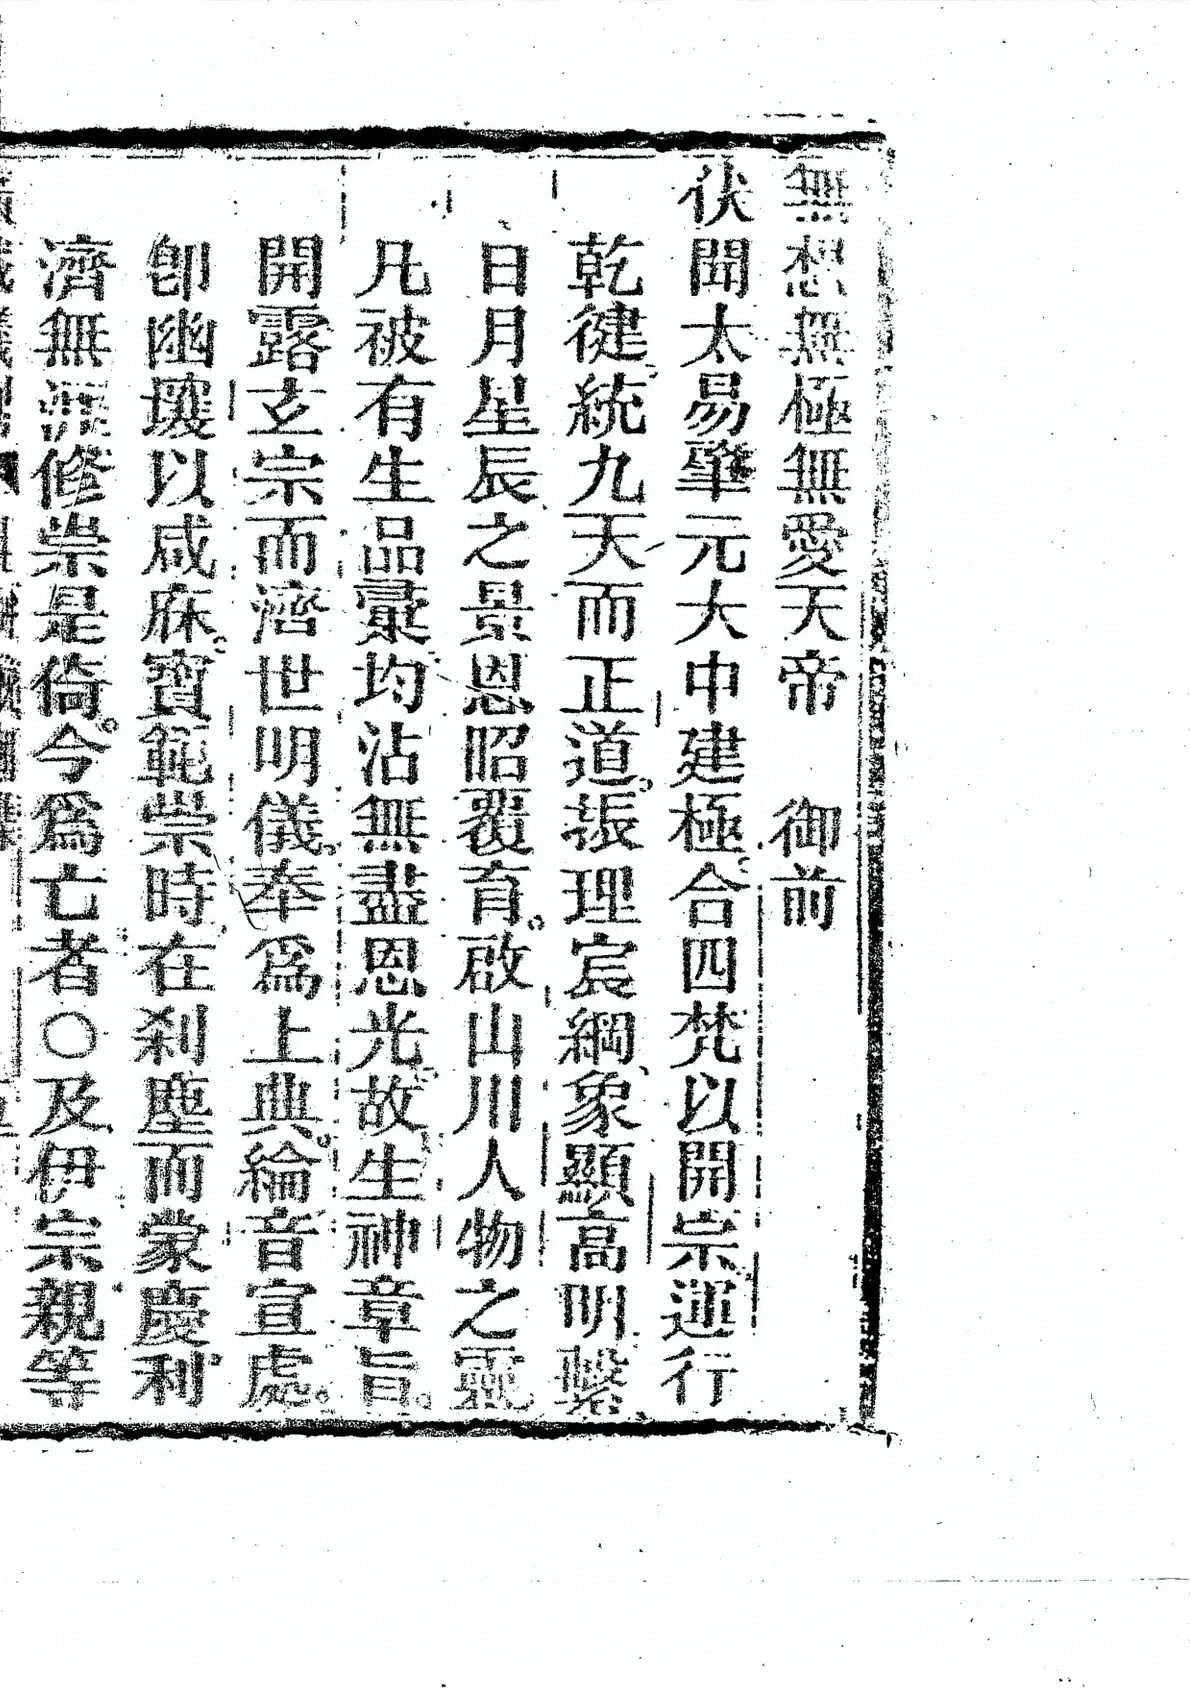 無想無極無愛天帝　御前
伏聞太易肇元大中建極合四梵以開宗運行
乾健統九天而正道張理宸綱象顯高明繫
日月星辰之景恩昭覆育啟山川人物之靈
凡被有生品彙均沾無盡恩光故生神章旨
開露玄宗而濟世明儀奉爲上典綸音宣處
卽幽壤以咸庥寶範崇時在刹塵而蒙慶利
濟無涯修崇是倚今爲亡者〇及伊宗親等